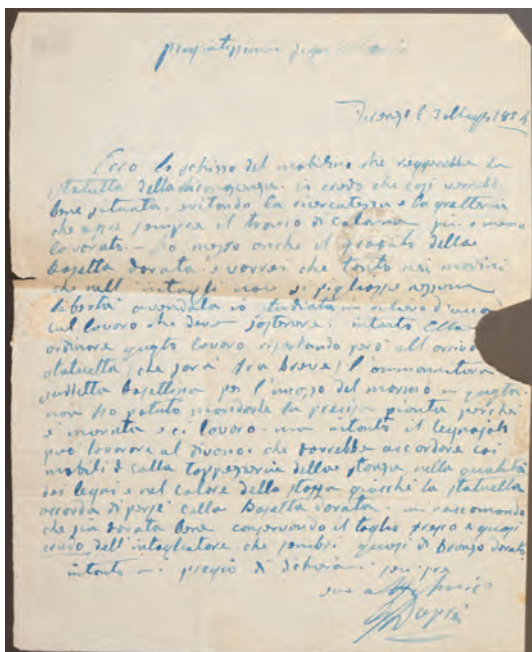 pregiatissimo
Firenze 1854
Ecco lo schizzo del mobilino che reggerebbe la
statuetta della riconoscenza. io credo che così verrebbe
bene situata, evitando la ricercatezza e la
che sempre il tronco di Colonna più o meno
lavorato - ho messo anche il profilo della
Basetta dorata e vorrei che tanto nei
che nell'intaglio non si pigliasse nessuna
libertà avendola io studiata in
col lavoro che deve sostenere. intanto Ella
ordinare questo lavoro però all'arrivo
statuetta, che sarà fra breve, l'
suddetta Basettina per l'incasso del marmo in questa.
non ho potuto mandarle la precisa pianta perché
è murata e ci lavoro. ma intanto il legnajolo
può lavorare al che dovrebbe accordare coi
mobili e colla tappezzeria della stanza, nella qualità
dei legni e nel colore della stoffa giacché la statuetta
accorda di per sé colla Basetta dorata. mi raccomando
che sia dorata bene conservando il taglio fresco e quasi
crudo dell'intagliatore che sembri quasi di Bronzo dorato
intanto
suo
Duprè